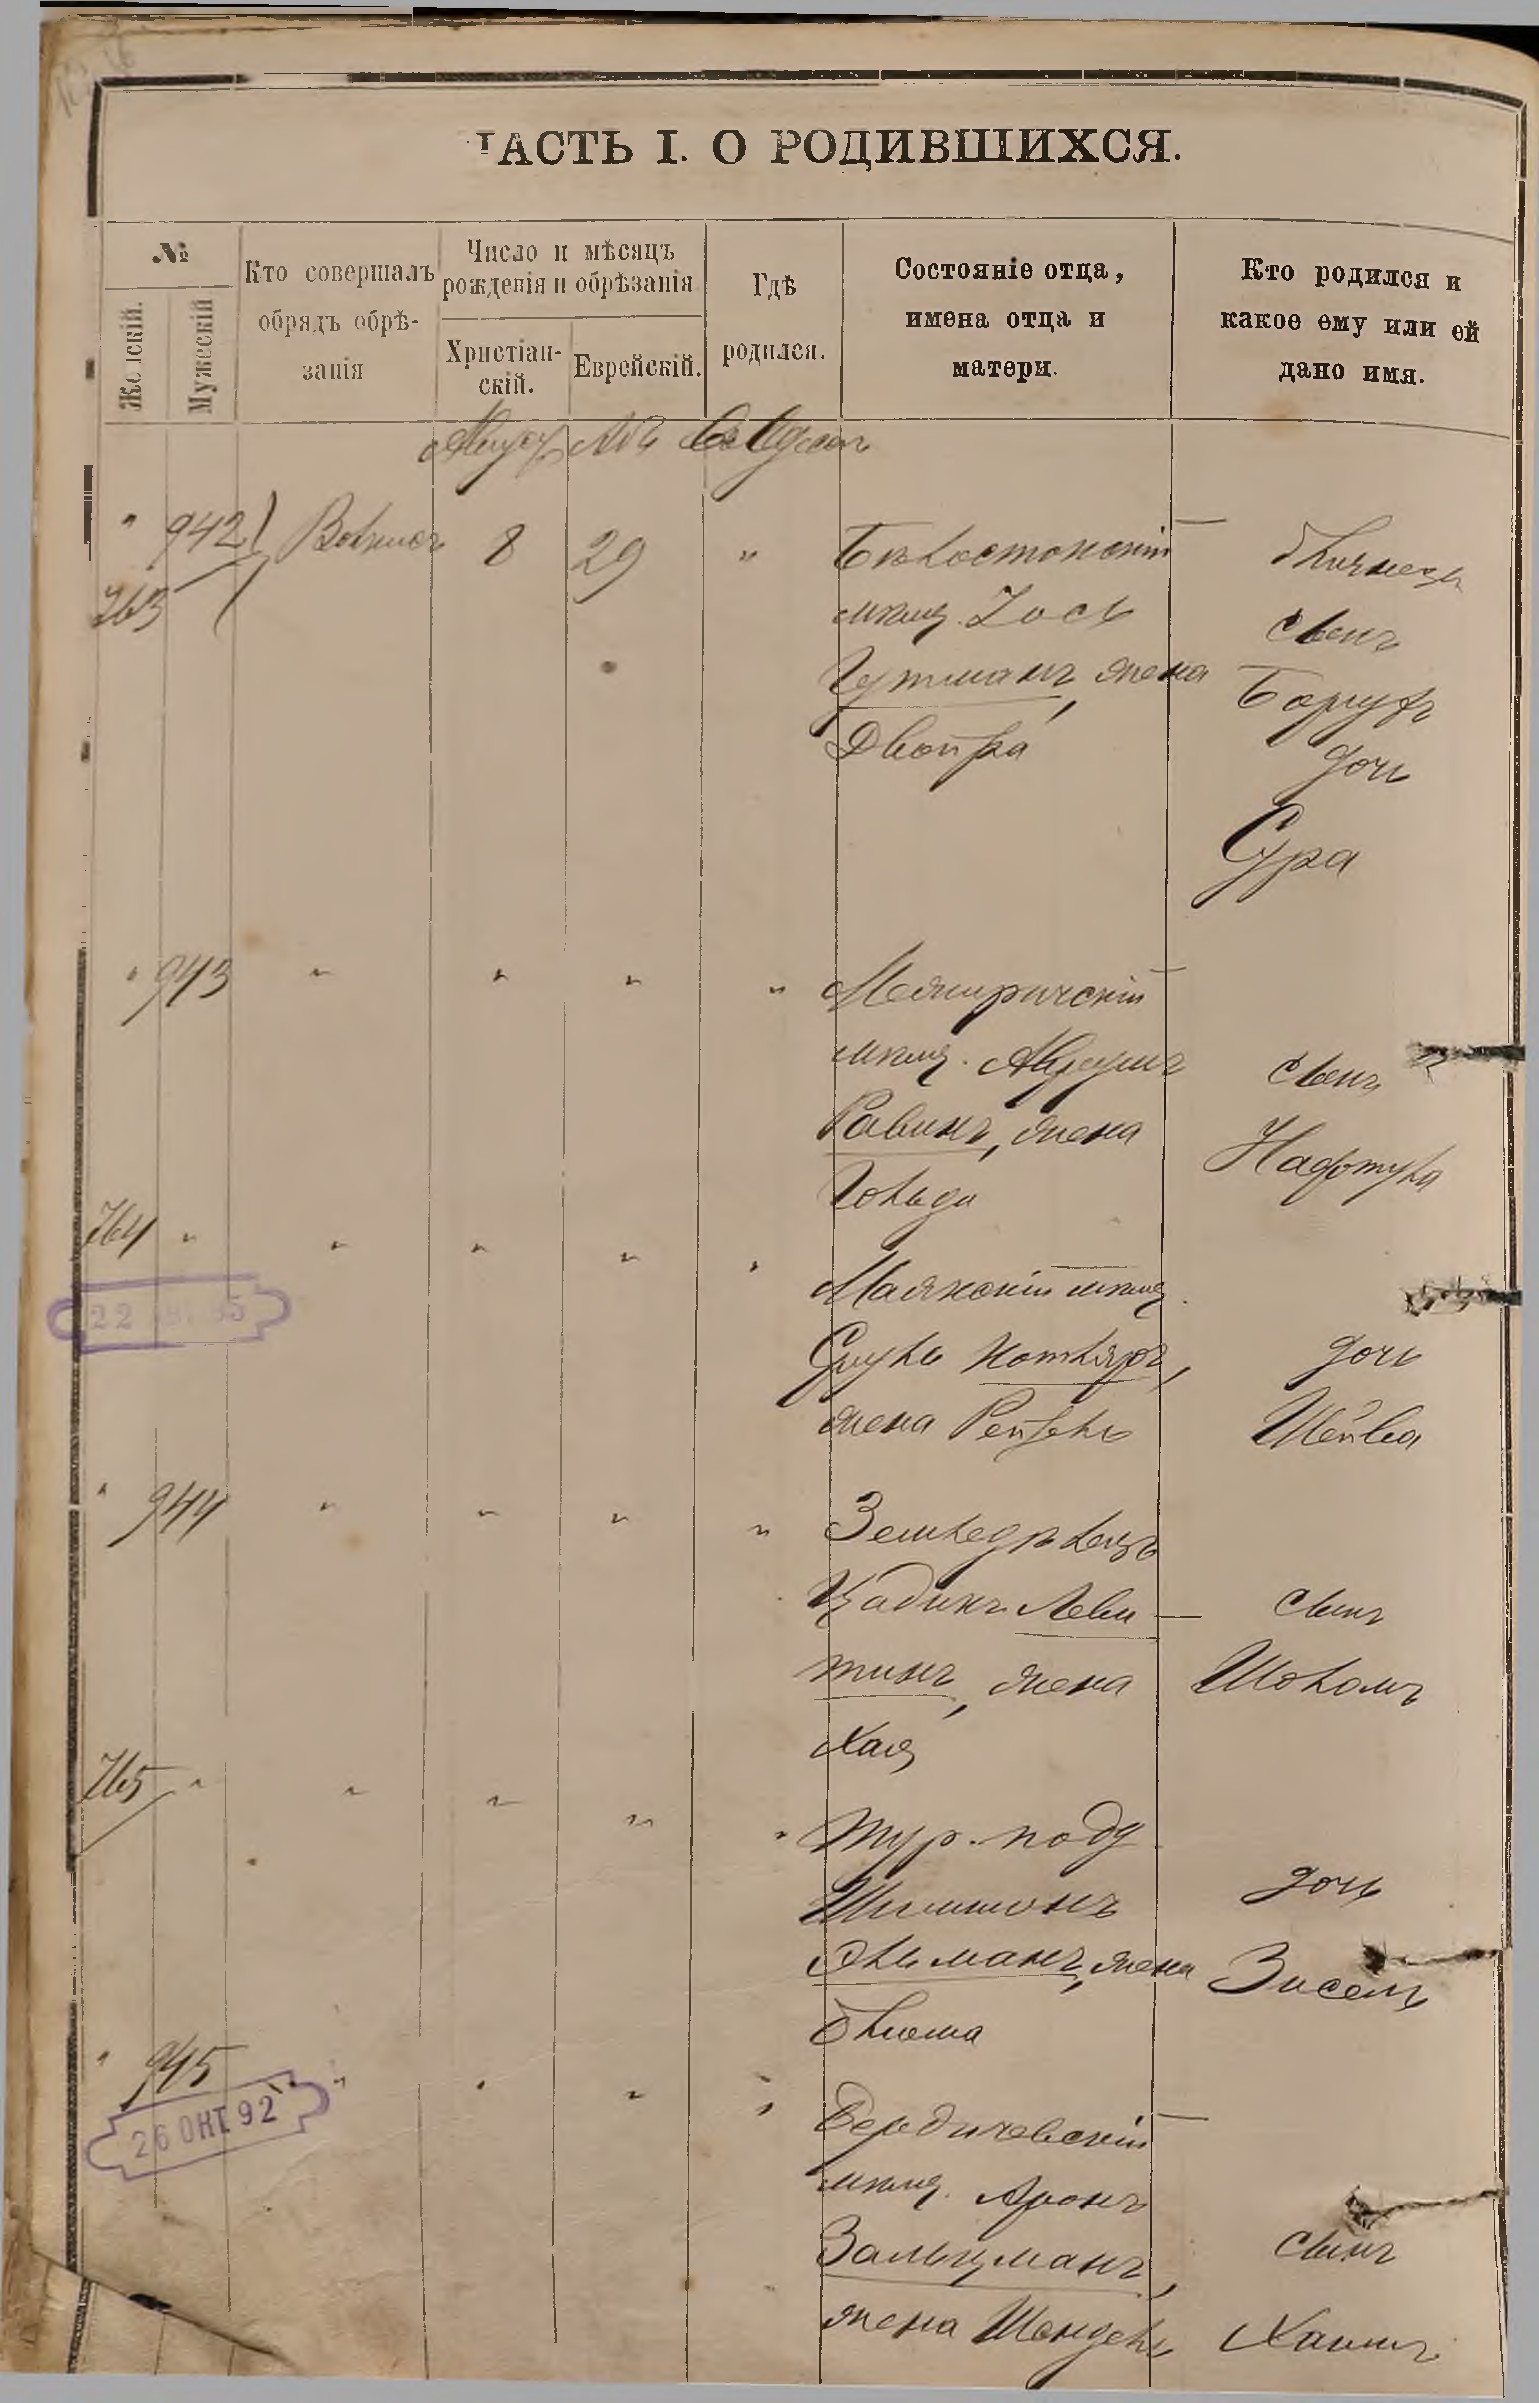 ЧАСТЬ I. О РОДИВШИХСЯ.
№
Женскій.
Мужескій
Кто совершалъ
обрядъ обрѣ-
занія
Число и мѣсяцъ
рожденія и обрѣзанія
Христіан-
скій.
Еврейскій.
Гдѣ
родился.
Состояніе отца,
имена отца и
матери.
Кто родился и
какое ему или ей
дано имя.
Въ Одессѣ
" 942
763
8
29
"
Бѣлостокскій
мѣщ. Іось
Гутманъ, жена
Двойра
близнецы
сынъ
Борухъ
дочь
Сура
" 943 " " " "
Межиричскій
мѣщ. Абрамъ
Равинъ, жена
Гольда
сынъ
Нафтула
764 " " " " "
22 95
Маякскій мѣщ.
Сруль Котляръ,
жена Рейзель
дочь
Шейва
" 944 " " " "
Земледѣлецъ
Цадикъ Леви
тинъ, жена
Хая
сынъ
Шоломъ
765 " " " " "
тур. подд
Шимшонъ
Альманъ, жена
Блюма
дочь
Зисель
" 945 " " " "
26 ОКТ 92
Бердичевскій
мѣщ. Аронъ
Зальцманъ,
жена Шендель
сынъ
Хаимъ